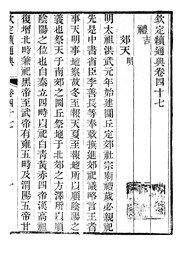 欽定續通典卷四十七
禮 吉
郊天 明
明太祖洪武元年始建圜丘定郊社宗廟禮歲必親祀
先是中書省臣李善長等奉敕撰進郊祀議略言王者
事天明事地察故冬至報天夏至報地所以順陰陽之
義也祭天于南郊之圜丘祭地于北郊之方澤所以順
陰陽之位也自秦立四畤以祀白青黃赤四帝漢高祖
復增北畤兼祀黑帝至武帝有雍五畤及渭陽五帝甘
欽定續通典 卷四十七